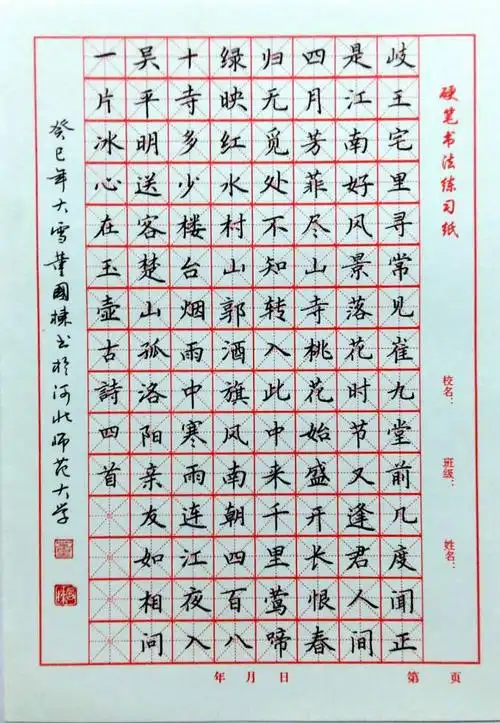 硬笔书法练习纸
校名：
班级：
姓名：
岐王宅里寻常见崔九堂前几度闻正
是江南好风景落花时节又逢君人间
四月芳菲尽山寺桃花始盛开长恨春
归无觅处不知转入此中来千里莺啼
绿映红水村山郭酒旗风南朝四百八
十寺多少楼台烟雨中寒雨连江夜入
吴平明送客楚山孤洛阳亲友如相问
一片冰心在玉壶古詩四首
癸巳年大雪董國棟书於河北师范大学
年 月 日
第 页